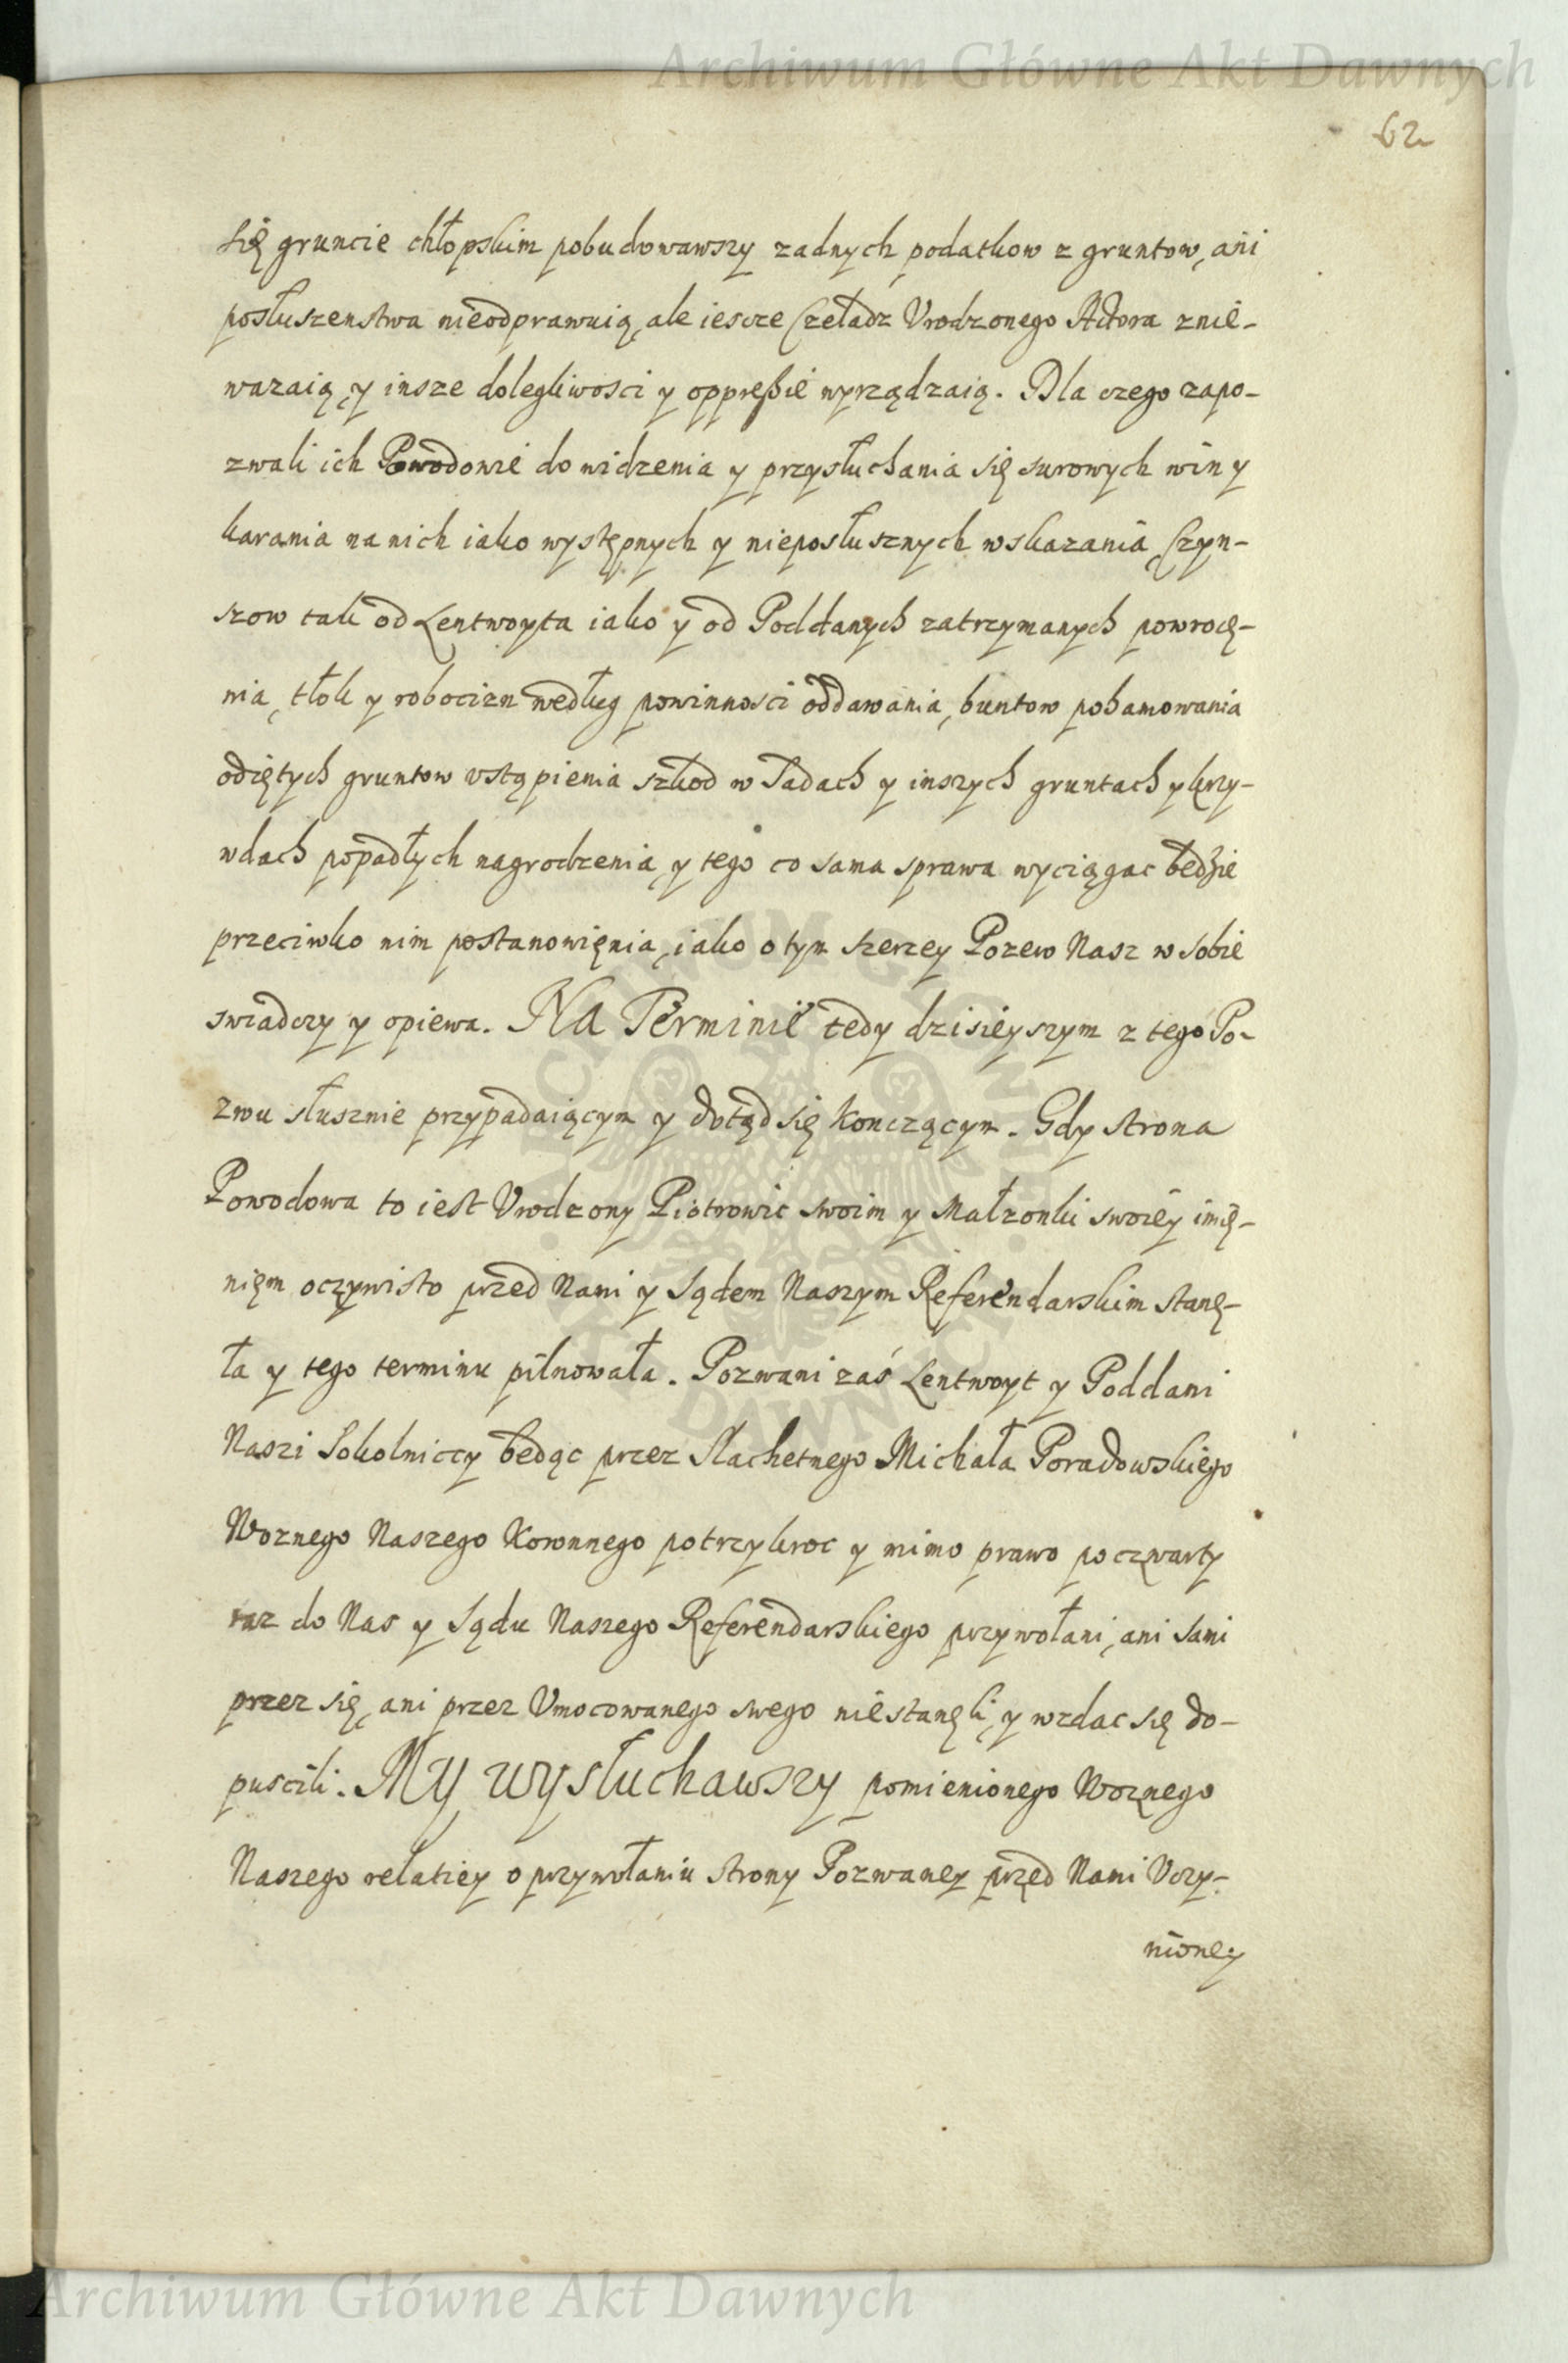 Archiwum Główne Akt Dawnych
62
się gruncie chłopskim pobudowawszy zadnych podatkow z gruntow, ani
posłuszenstwa nieodprawuią, ale iescze Czeładz Vrodzonego Actora znie-
wazaią, y insze dolegliwosci y oppreßie wyrządzaią. Dla czego zapo-
zwali ich Powodowie do widzenia y przysłuchania się surowych win y
karania na nich iako występnych y nieposłusznych wskazania, Czyn-
szow tak od Lentwoyta iako y od Poddanych zatrzymanych powrocę-
nia, tłok y robocizn według powinnosci oddawania, buntow pohamowania
odiętych gruntow vstąpienia szkod w Sadach y inszych gruntach y krzy-
wdach popadłych nagrodzenia, y tego co sama sprawa wyciągac będzie
przeciwko nim postanowięnia, iako o tym szerzey Pozew Nasz w sobie
swiadczy y opiewa. Na Terminie tedy dzisieyszym z tego Po-
zwu słusznie przypadaiącym y dotąd się konczącym. Gdy strona
Powodowa to iest Vrodzony Piotrowic swoim y Małzonki swoiey imię-
nięm oczywisto przed Nami y Sądem Naszym Referendarskim stanę-
ła y tego terminu pilnowała. Pozwani zaś Lentwoyt y Poddani
Naszi Sokolniccy będąc przez Slachetnego Michała Poradowskiego
Woznego Naszego Koronnego potrzykroc y mimo prawo po czwarty
raz do Nas y Sądu Naszego Referendarskiego przywołani, ani sami
przez się, ani przez Vmocowanego swego niestanęli, y wzdac się do-
puscili. My wysłuchawszy pomienionego Woznego
Naszego relatiey o przywołaniu strony Pozwaney przed Nami Vczy-
nioney
Archiwum Główne Akt Dawnych